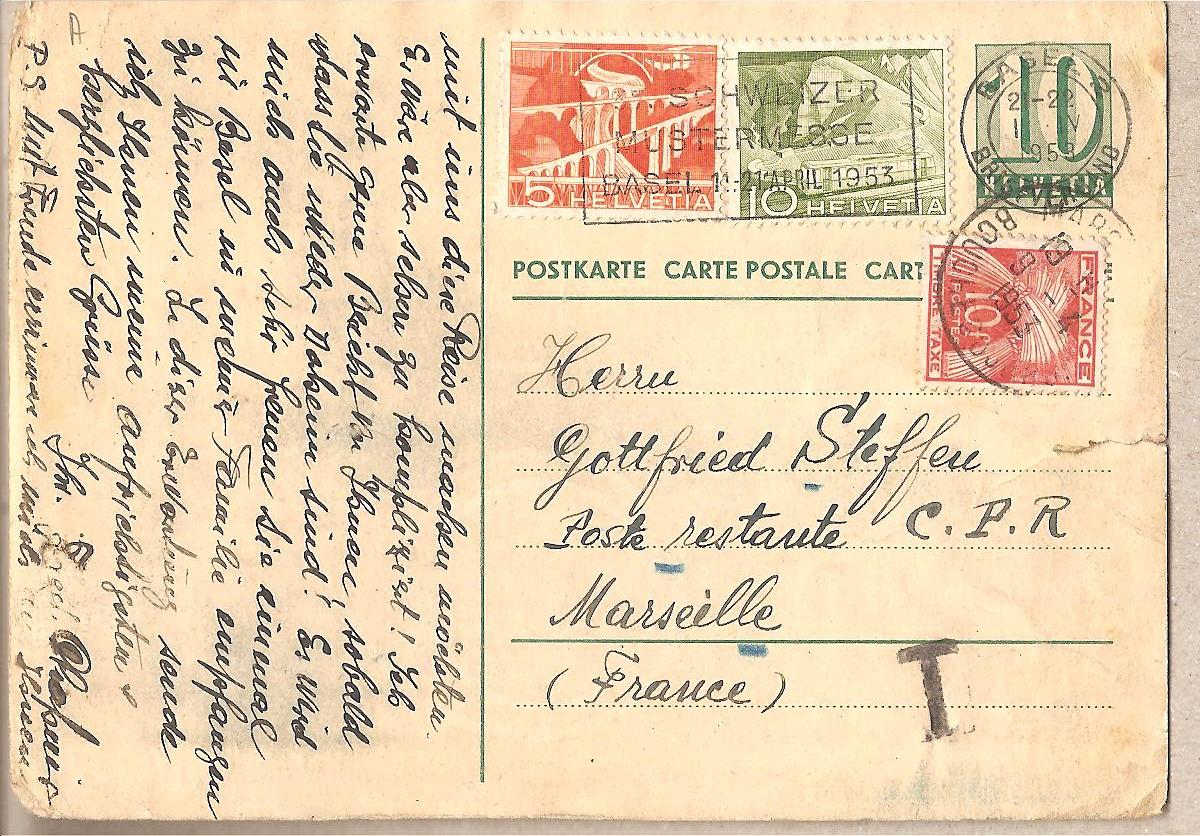 SCHWEIZER
MUSTERMESSE
BASEL 11-21 APRIL 1953
5 HELVETIA
10 HELVETIA
10
HELVETIA
BASEL
POSTKARTE CARTE POSTALE CART
FRANCE
10F
POSTES
TIMBRE TAXE
Herrn
Gottfried Steffen
Poste restante C.P.R
Marseille
(France)
T
mit uns diese Reise machen möchten.
Es wäre aber selben zu kompliziert! Ich
erwarte gerne Bericht von Ihnen, sobald
dass Sie wieder Daheim sind! Es wird
mich auch sehr freuen Sie einmal
in Basel in meiner Familie empfangen
zu können. In dieser Erwartung sende
ich Ihnen meine aufrichtigsten &
herzlichsten Grüsse
Ihr.
P.S Mit Freude erinnere ich mich